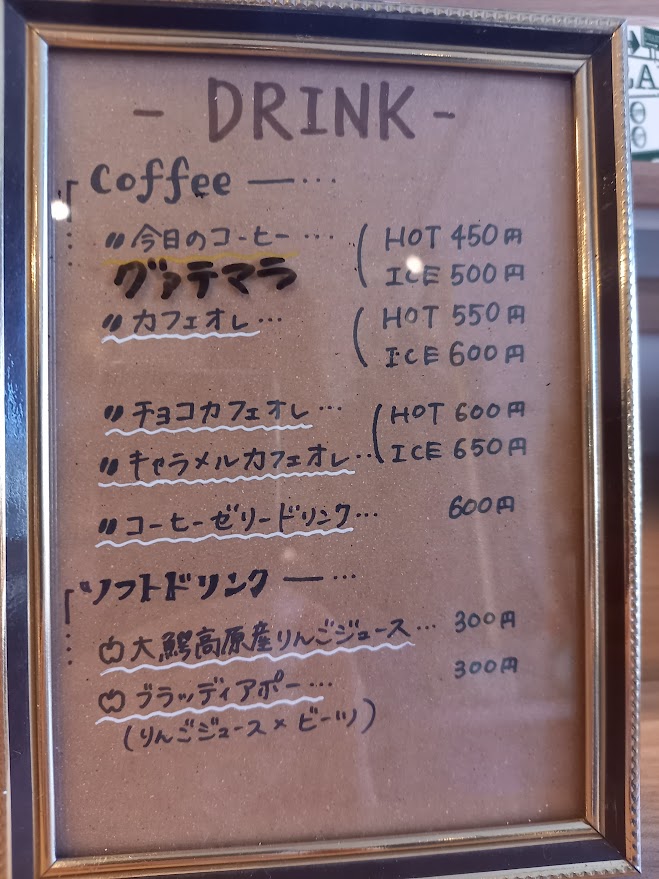 - DRINK -
Coffee — …
今日のコーヒー … HOT 450円
グァテマラ ICE 500円
カフェオレ … HOT 550円
ICE 600円
チョコカフェオレ … HOT 600円
キャラメルカフェオレ … ICE 650円
コーヒーゼリードリンク … 600円
ソフトドリンク — …
大鰐高原産りんごジュース … 300円
ブラッディアポー … 300円
(りんごジュース × ビーツ)